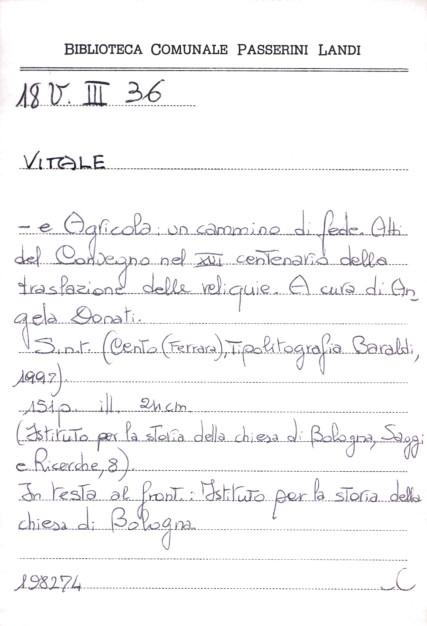 BIBLIOTECA COMUNALE PASSERINI LANDI
18 V. III 36
VITALE
- e Agricola: un cammino di fede. Atti
del Convegno nel XVI centenario della
traslazione delle reliquie. A cura di An
gela Donati.
S.n.t. (Cento (Ferrara), Tipolitografia Baraldi,
1997).
151p. ill. 24cm.
(Istituto per la storia della chiesa di Bologna, Saggi
e Ricerche, 8).
In testa al front.: Istituto per la storia della
chiesa di Bologna
198274